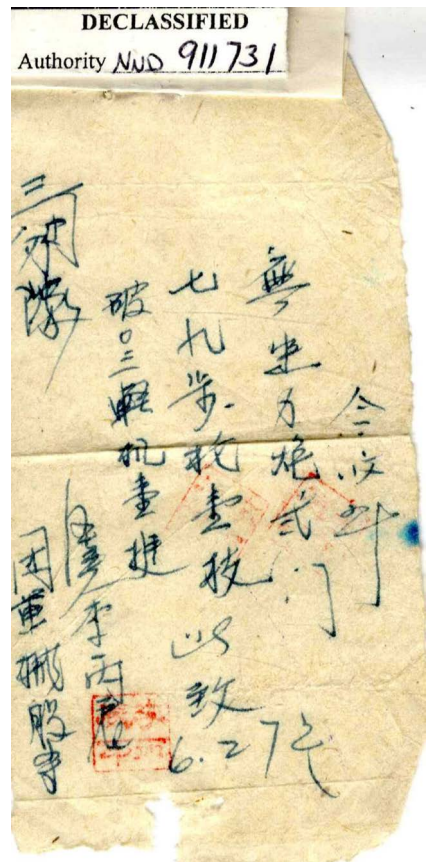 DECLASSIFIED
Authority NND 911731
今收到
無坐力炮弍门
七九步枪壹枝 以致
破〇三軽机壹挺
6.27
李丙
团軍械股
三